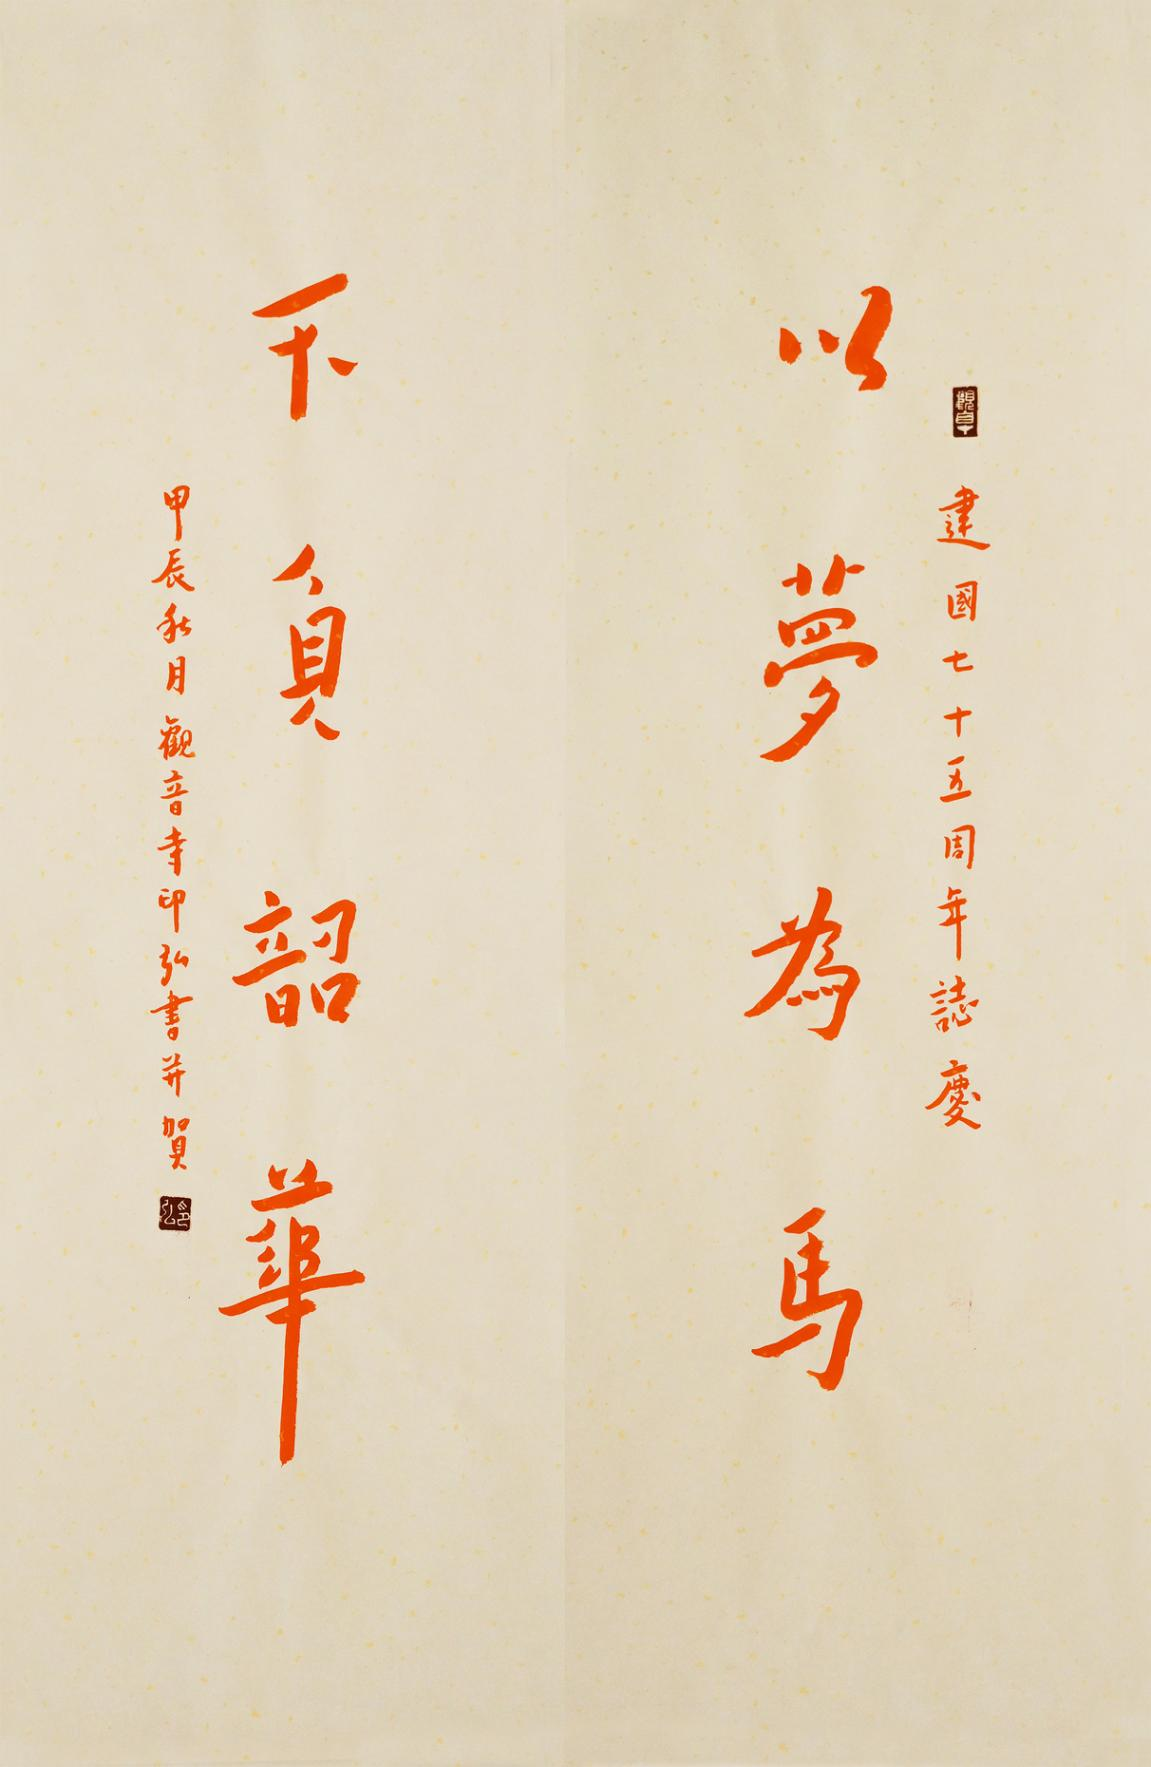 建國七十五周年誌慶
以夢為馬
不負韶華
甲辰秋月觀音寺印弘書并賀
印弘